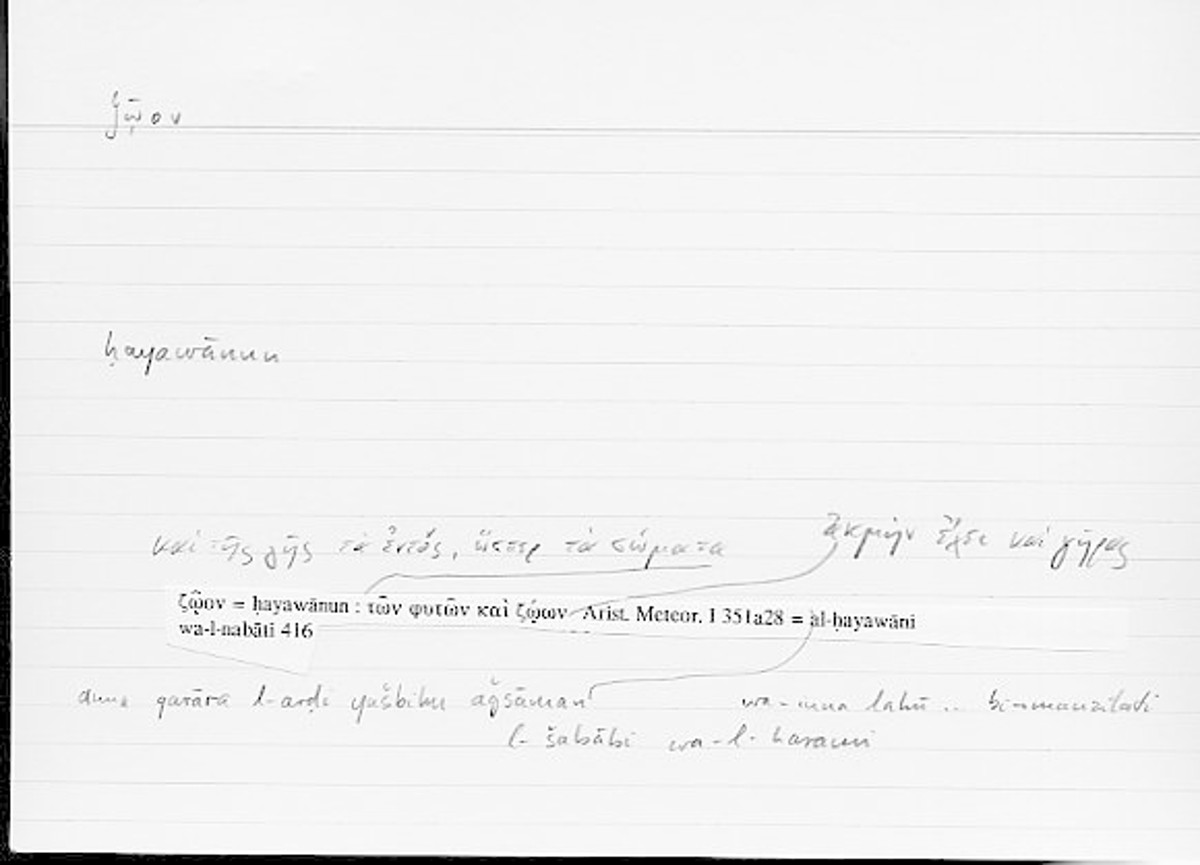 ζῷον
ḥayawānun
καὶ τῆς γῆς τὰ ἐντός, ὥσπερ τὰ σώματα ἀκμὴν ἔχει καὶ γῆρας
ζῷον = ḥayawānun : τῶν φυτῶν καὶ ζῴων Arist. Meteor. I 351a28 = al-ḥayawāni
wa-l-nabāti 416
anna qarāra l-arḍi yušbihu aǧsāman wa-anna lahū .. bi-manzilati
l-šabābi wa-l-harami